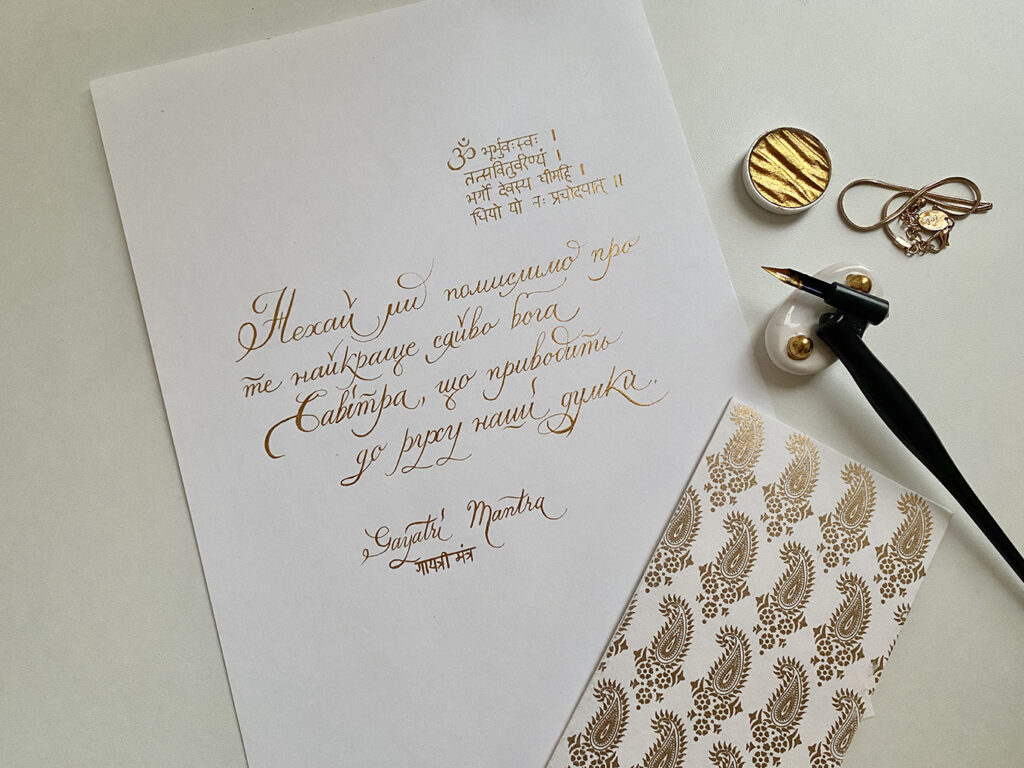 ॐ भूर्भुवःस्वः ।
तत्सवितुवरेण्यं ।
भर्गो देवस्य धीमहि ।
धियो यो नः प्रचोदयात् ॥
Нехай ми помислимо про
те найкраще сяйво бога
Савітра, що приводить
до руху наші думки.
Gayatri Mantra
गायत्री मंत्र